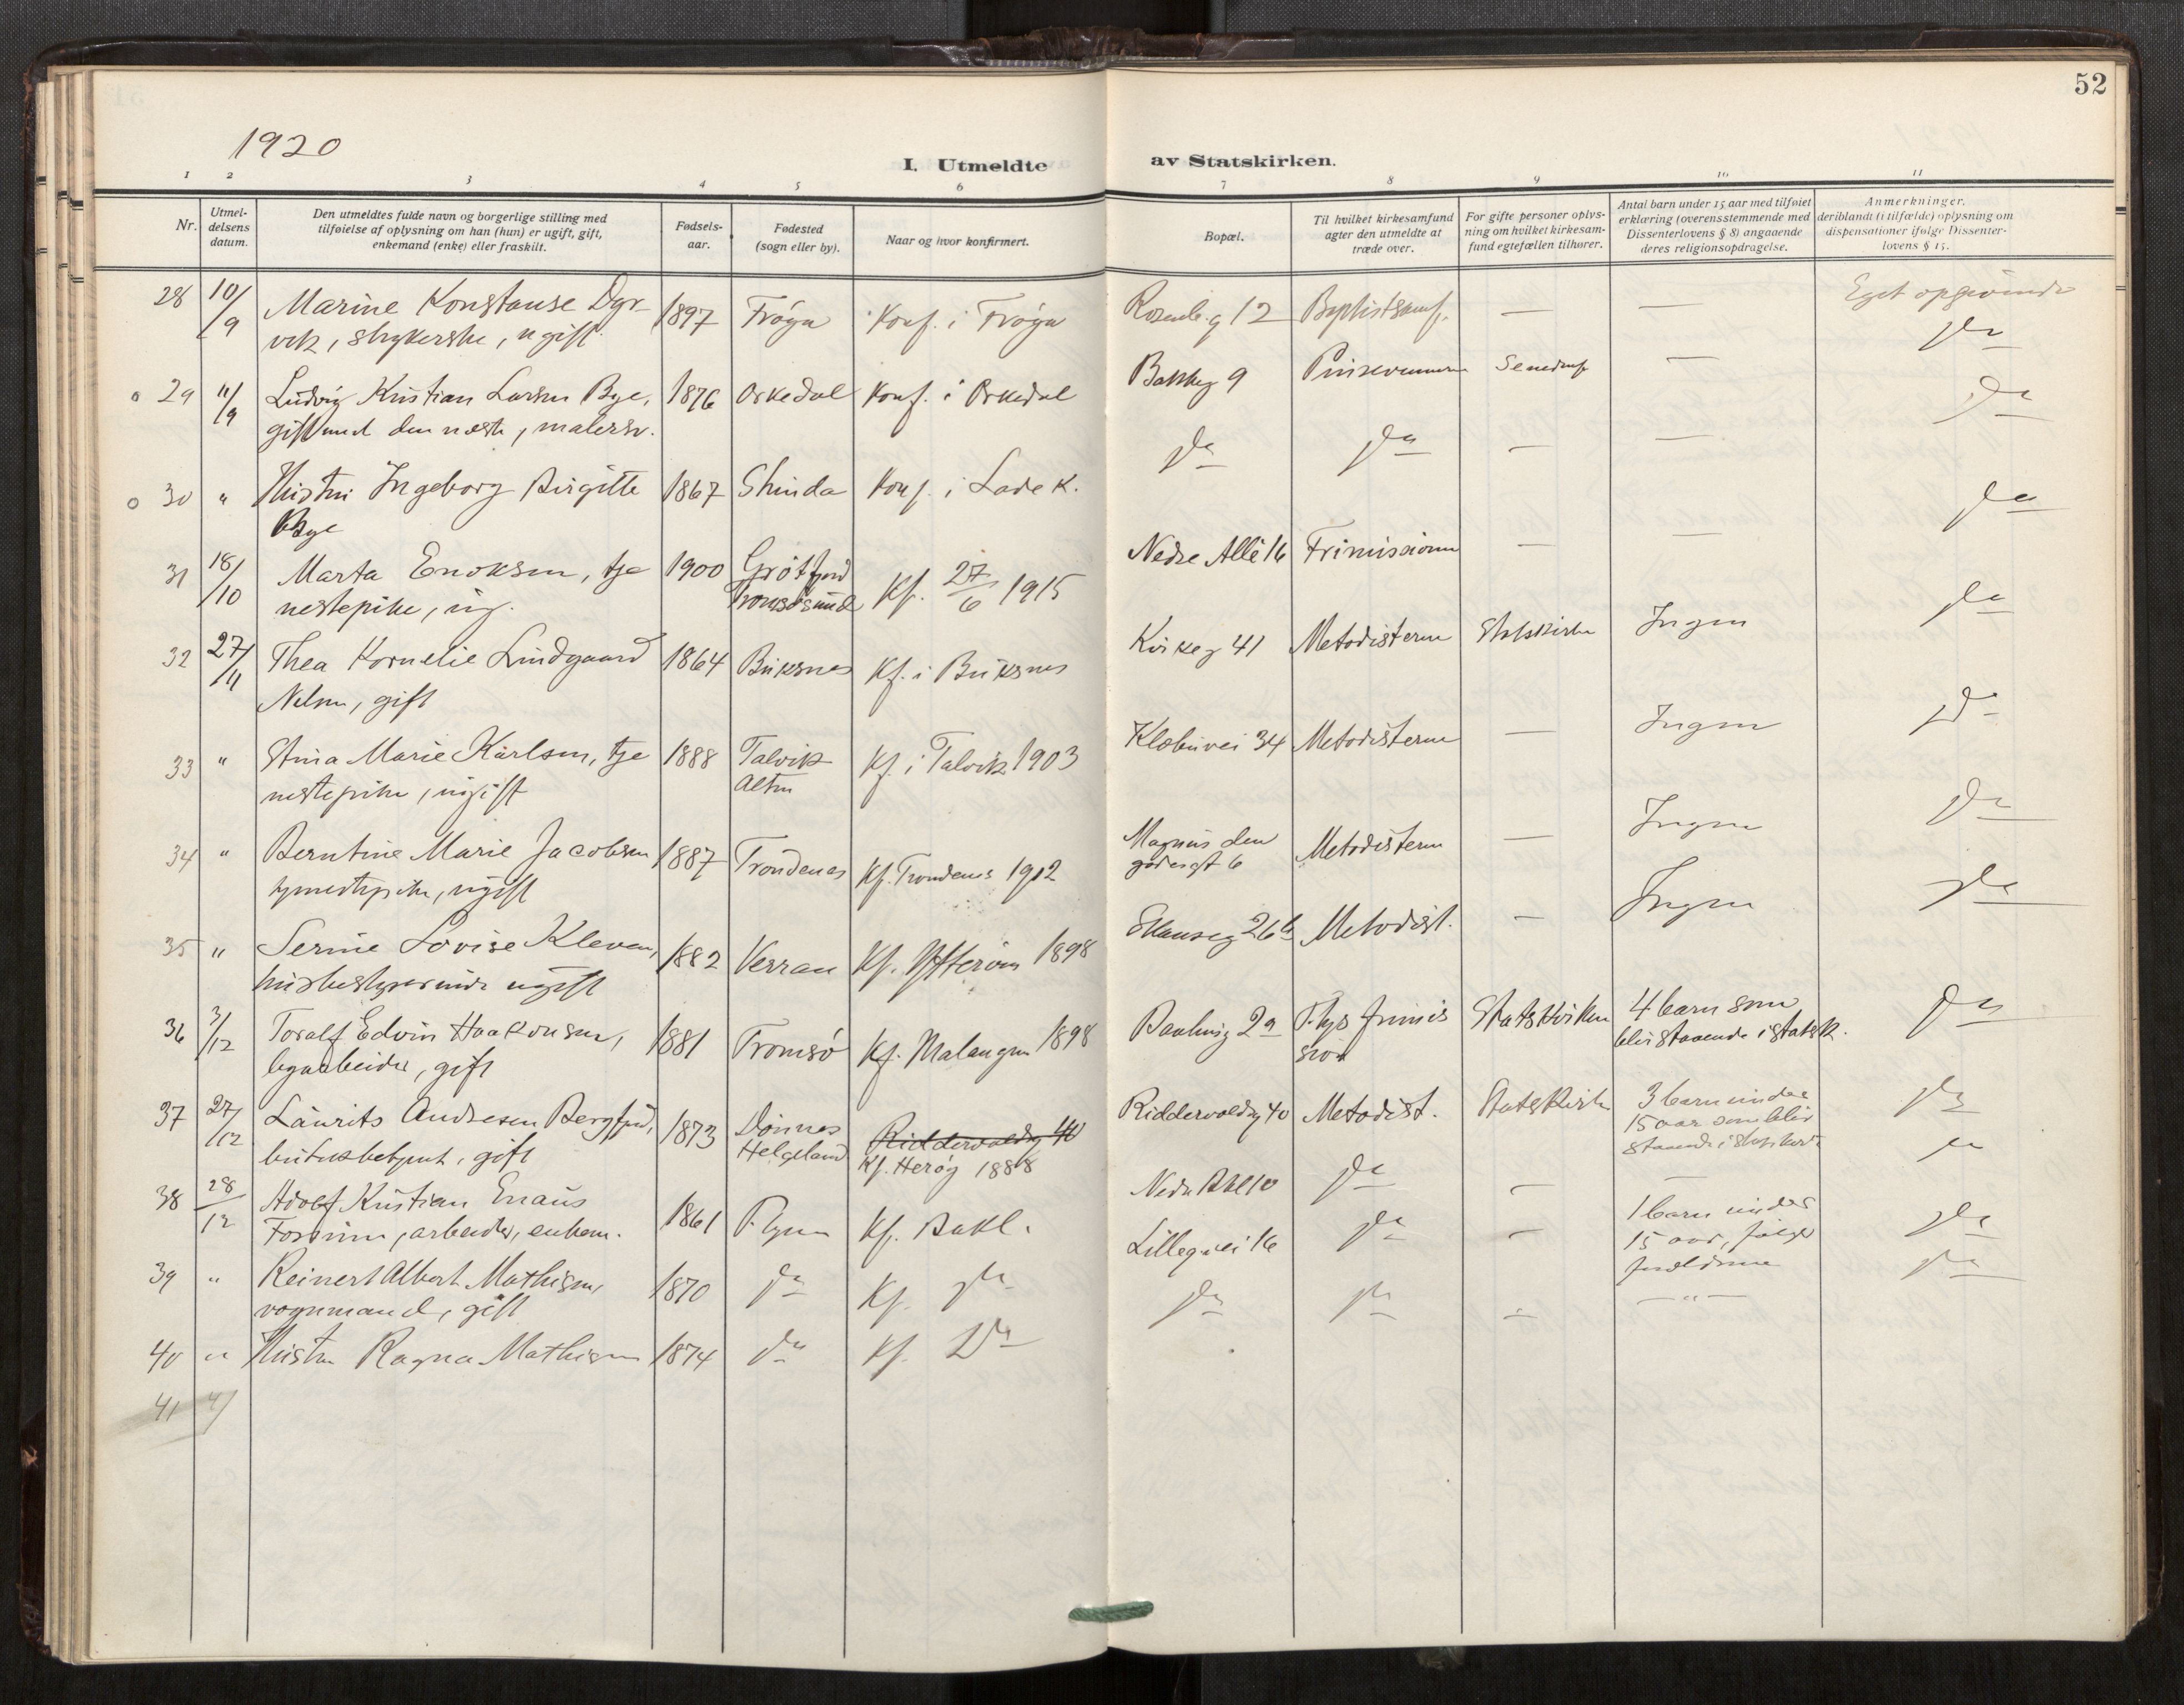 52
1920
I. Utmeldte av Statskirken.
1 2 3 4 5 6 7 8 9 10 11
Nr.
Utmel-
delsens
datum.
Den utmeldtes fulde navn og borgerlige stilling med
tilføielse af oplysning om han (hun) er ugift, gift,
enkemand (enke) eller fraskilt.
Fødsels-
aar.
Fødested
(sogn eller by).
Naar og hvor konfirmert.
Bopæl.
Til hvilket kirkesamfund
agter den utmeldte at
træde over.
For gifte personer oplys-
ning om hvilket kirkesam-
fund egtefællen tilhører.
Antal barn under 15 aar med tilføiet
erklæring (overensstemmende med
Dissenterlovens § 8) angaaende
deres religionsopdragelse.
Anmerkninger,
deriblandt (i tilfælde) oplysning om
dispensationer ifølge Dissenter-
lovens § 15.
28 10/9 Marine Konstanse Dyr- 1897 Frøya Konf. i Frøya Rosenb.g 12 Baptistsamf. — — Eget opgivende
vik, strykerske, ugift
29 11/9 Ludvig Kristian Larsen Bye, 1876 Orkedal Konf. i Orkedal Bakkeg 9 Pinsevennerne — Do
gift med den næste, malersv.
30 " Hustru Ingeborg Birgitte 1867 Strinda Konf. i Lade K. Do Do — — Do
Bye
31 18/10 Marta Enoksen, tje 1900 Grøtfjord Kf. 27/6 1915 Nedre Allé 16 Frimissionen — — Do
nestepike, ug. Tromsøsund
32 27/11 Thea Kornelie Lindgaard 1864 Buksnes Kf. i Buksnes Kirkeg 41 Metodisterne Statskirken Ingen Do
Nelsen, gift
33 " Stina Marie Karlsen, tje 1888 Talvik Kf. i Talvik 1903 Klæbuvei 34 Metodisterne — Ingen Do
nestepike, ugift Alten
34 " Berntine Marie Jacobsen 1887 Trondenes Kf. Trondenes 1902 Magnus den Metodisterne — Ingen Do
tjenestepike, ugift godesgt 6
35 " Serine Lovise Kleven, 1882 Verran Kf. Ytterøen 1898 Skanseg 26b Metodist. — Ingen Do
husbestyrerinde ugift
36 3/12 Toralf Edvin Haakonsen, 1881 Tromsø Kf. Malangen 1898 2a Statskirken 4 barn som Do
byarbeider, gift sion blir staaende i statsk.
37 27/12 Laurits Andresen Bergfjord, 1873 Dønnes Riddervoldsg 40 Riddervoldsg 40 Metodist. Statskirk 3 barn under Do
butikbetjent, gift Helgeland Kf. Herøy 1888 15 aar som blir
staaende i statskirk
38 28/12 Adolf Kristian Enaus 1861 Kf. Bakl. Do — — Do
arbeider, enkem.
39 " Reinert Albert Mathisen, 1870 Do Kf. Do Do — 1 barn under Do
vognmand, gift 15 aar, følger
forældrene
40 " Hustru Ragna Mathisen 1874 Do Kf. Do Do Do — — " — Do
41 4/